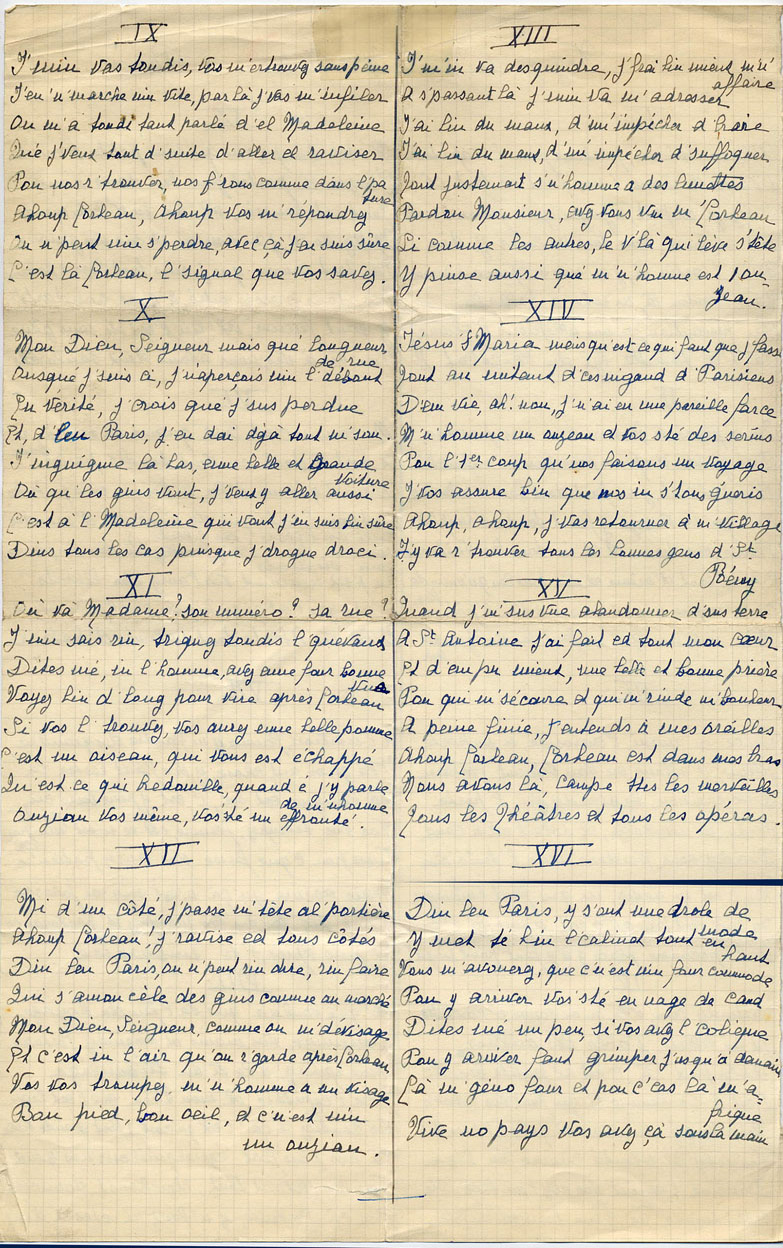 IX
J'min vas toudis, vos m'ertrouvez sans peine
J'en'n marche nin vite, par là j'vas m'infiler
On m'a toudi tant parlé d'el Madeleine
Qué j'veux tout d'suite d'aller el raviser
Pou nos r'trouver, nos f'rons comme dans l'pature
Ahoup Corteau, Ahoup vos m'répondrez
On n'peut nin s'perdre, avec çà j'en suis sûre
C'est là Corteau, l'signal que vos savez.
X
Mon Dieu, Seigneur mais qué longueur de rue
Ousqué j'suis ci, j'n'aperçois nin l'débout
En Vérité, j'crois que j'sus perdue
Et, d'leu Paris, j'en dai dgà tout m'sou.
J'inguigne là bas, enne belle et grande voiture
Où qu'les gins vont, j'veux y aller aussi
C'est à l'Madeleine qui vont j'en suis bin sûre
Dins tous les cas puisque j'drogue droci.
XI
Où và Madame? son numéro? sa rue?
J'nin sais rin, triquez toudis l'guévaux
Dites mé, in l'homme, avez enne four bonne vue
Voyez bin d'long pour vire après Corteau
Si vos l'trouvez, vos aurez enne belle pomme
C'est un oiseau, qui vous est échappé
Qu'est ce qui bedouille, quand é j'y parle de m'n'homme
Ouziau vos même, vos'té un éffronté.
XII
Mi d'un côté, j'passe m'tête al'portière
Ahoup Corteau! j'ravise ed tous côtés
Din leu Paris, on n'peut rin dire, rin faire
Qui s'amoncèle des gins comme au marché
Mon Dieu, Seigneur, comme on m'dévisage
Et c'est in l'air qu'on r'garde après Corteau
Vos vos trompez, m'n'homme a un visage
Bon pied, bon oeil, et c'n'est nin
un ouziau.
XIII
J'm'in va desquindre, j'frai bin mieux m'n'affaire
A s'passant là j'min va m'adresser
J'ai bin du maux, d'm'impécher d'braire
J'ai bin du maux, d'mé impécher d'suffoquer
Tout justemant s'n'homme a des lunettes
Pardon Monsieur, avez vous vu m'Corteau
Li comme les autres, le v'là qui lève s'tête
Y pinse aussi qué m'n'homme est l'ouzeau.
XIV
Jésus & Maria mais qu'est ce qui faut que j'fasse
Tout au mitant d'ces nigaud d'Parisiens
D'em vie, ah! non, j'n'ai eu une pareille farce
M'n'homme un ouzeau et vos sté des serins
Pou l'1er coup qu'nos faisons un voyage
J'vos assure bin que nos in s'tons guéris
Ahoup, ahoup, j'vas retourner à m'village
J'y va r'trouver tous les bonnes gens d'St
Rémy
XV
Quand j'm'sus vue abandonner d'sus terre
A St Antoine j'ai fait ed tout mon cœur
Et d'em pu mieux, une belle et bonne prière
Pou qui m'sécoure et qui m'rinde m'bonheur
A peine finie, j'entends à mes oreilles
Ahoup Corteau, Corteau est dans mes bras
Nous avons là, campe ttes les merveilles
Tous les théâtres et tous les apéras.
XVI
Din leu Paris, y s'ont une drole de mode
Y met té bin l'cabinet tout en haut
Vous m'avouerez, que c'n'est nin four commode
Pou y ariver vos'té en nage de caud
Dites mé un peu, si vos avez l'colique
Pou y ariver faut grimper j'usqu'à demain
Çà m'géno four et pou c'cas là m'a-
Vive no pays vos avez çà sous la main